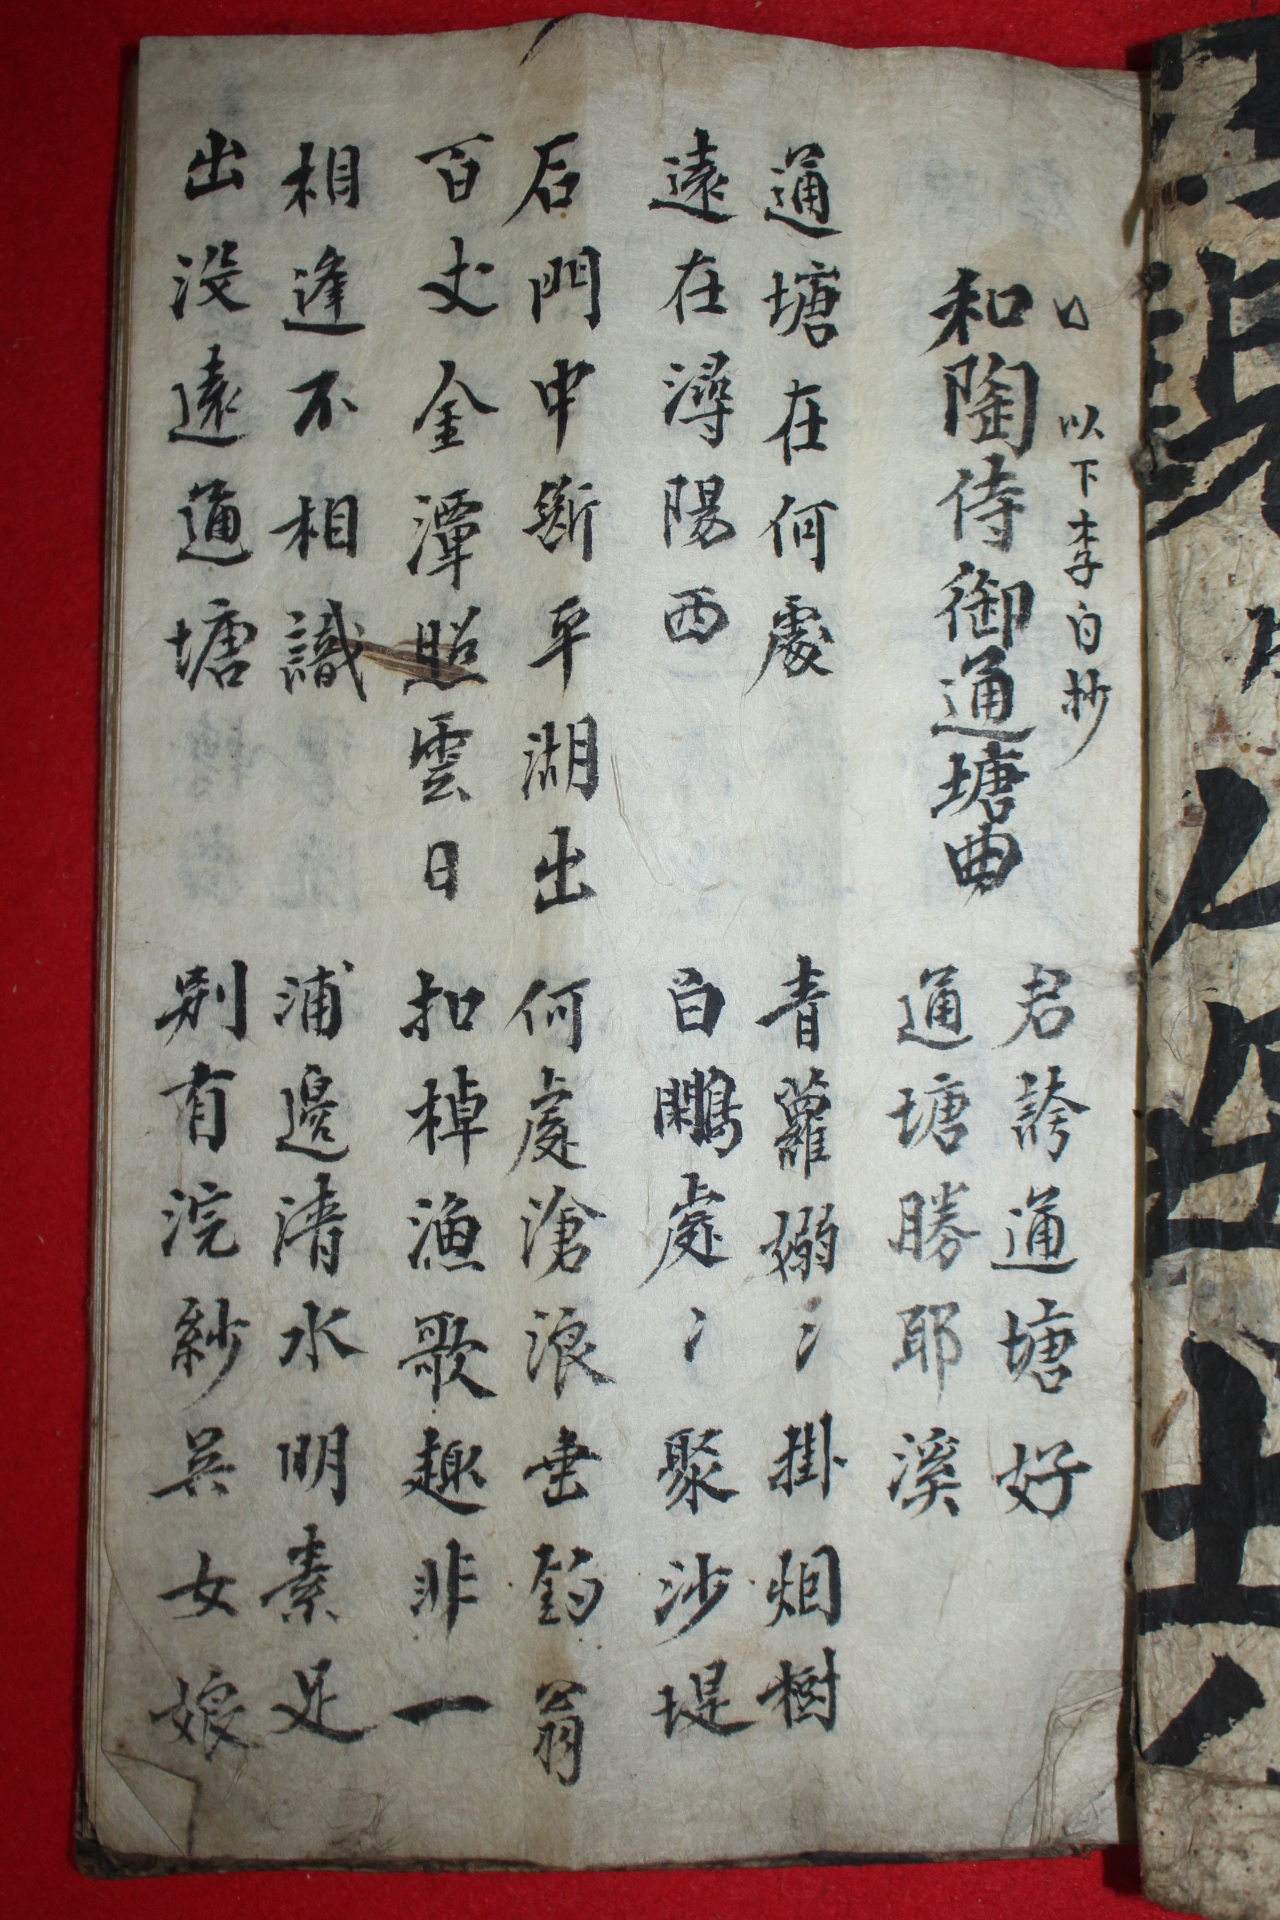 以下李白抄
和陶侍御通塘曲
君誇通塘好
通塘勝耶溪
通塘在何處
遠在潯陽西
青蘿嫋〻掛烟樹
白鷴處〻聚沙堤
石門中斷平湖出
百丈金潭照雲日
何處滄浪垂釣翁
扣棹漁歌趣非一
相逢不相識
出没遠通塘
浦邊清水明素足
別有浣紗吳女娘